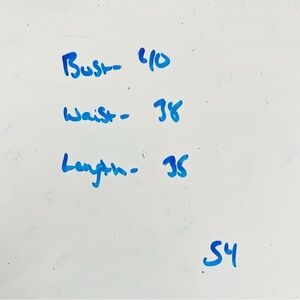 Bust- 40
Waist- 38
Length- 35
S4